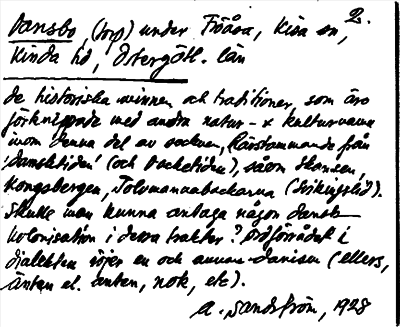 2.
Dansbo (torp) under Föllsa, Kisa sn,
Kinda hd, Östergötl. län
de historiska minnen och traditioner, som äro
förknippade med andra natur- x kulturnamn
inom denna del av socknen, härstammande från
'dansketiden' (och Dacketiden), såsom Skansen,
Kongsbergen, Tolvmannabackarna (Svikugglid).
Skulle man kunna antaga någon dansk
kolonisation i dessa trakter? Ordförrådet i
dialekten röjer en och annan danism (ellers,
äntan el. anten, nok, etc).
A. Sandström, 1928